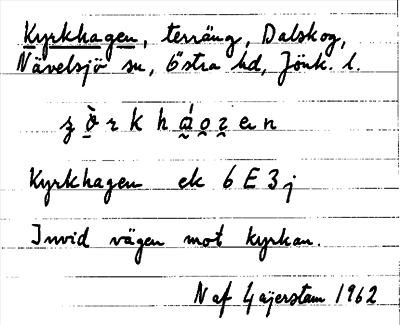 Kyrkhagen, terräng, Dalskog,
Nävelsjö sn, Östra hd, Jönk. l.
Kyrkhagen ek 6 E 3 j
Invid vägen mot kyrkan.
N af Gajerstam 1962